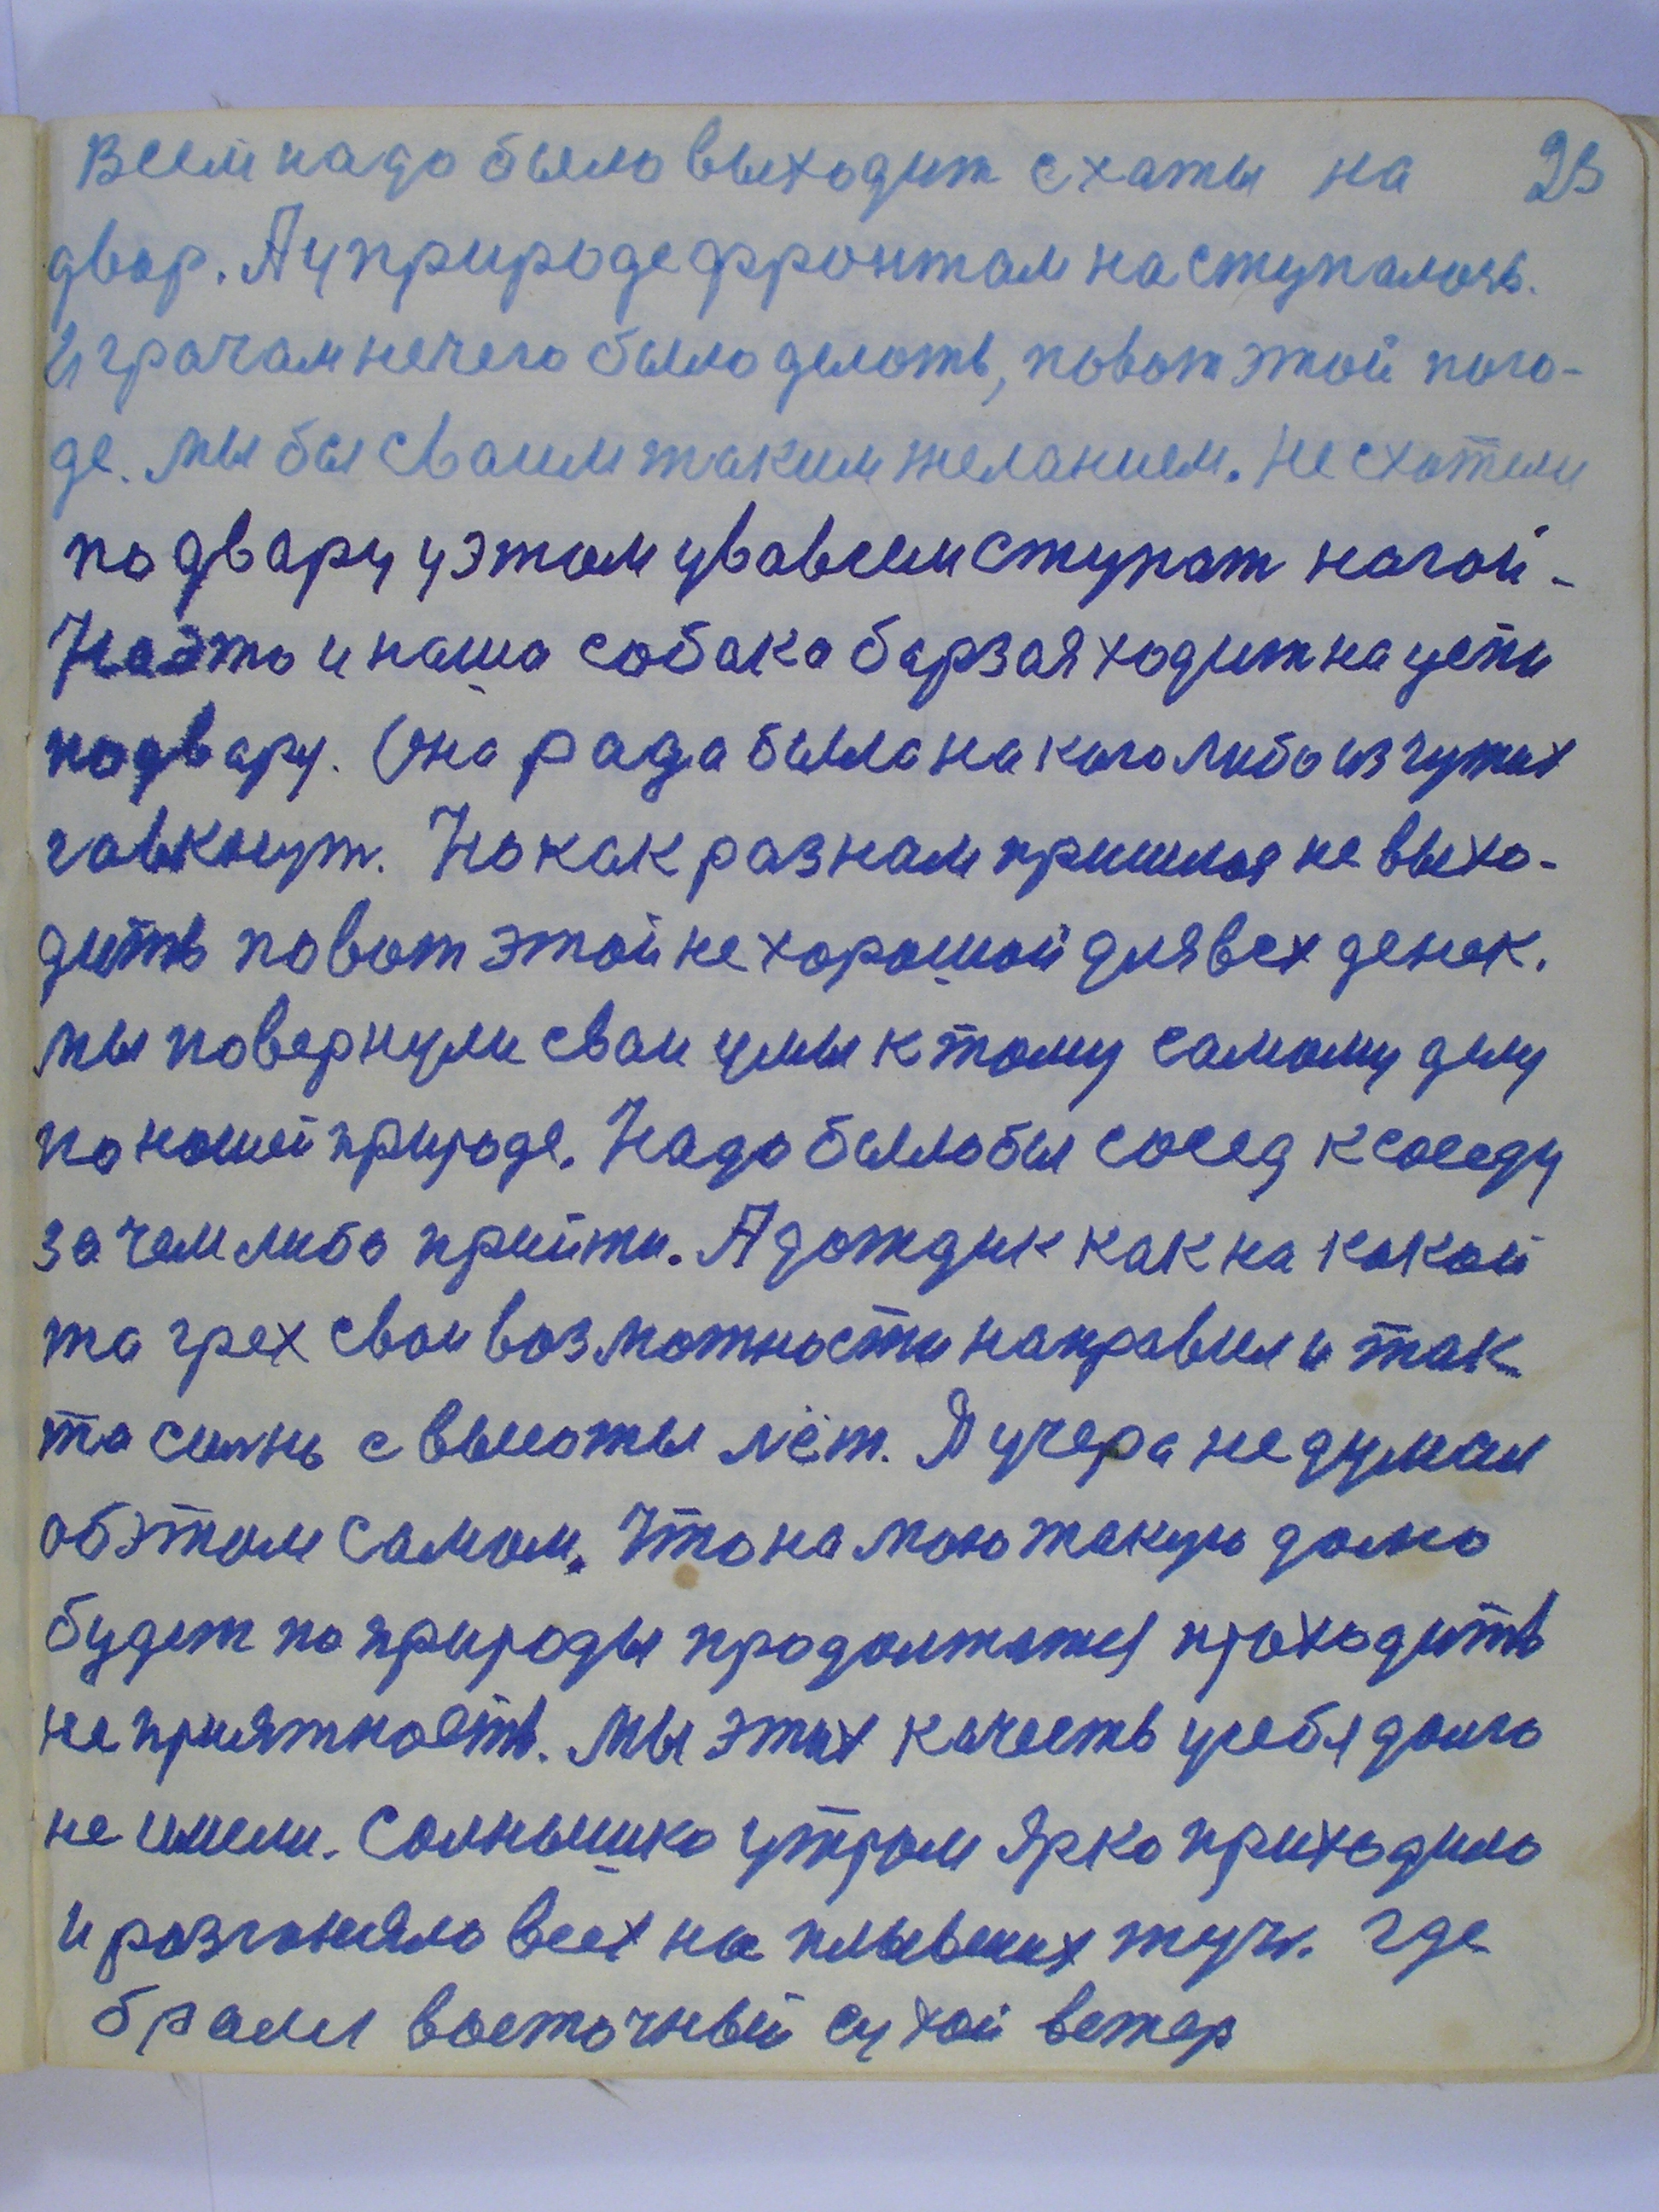 Всем надо было выходит с хаты на 23
двор. А у природе фронтом наступалось.
И грачам нечего было делоть, по вот этой пого-
де. Мы бы сваим таким желанием. Не схотели
по двару у этом у вовсем ступат нагой -
На это и наша собака барзая ходит на цепи
по двару. Она рада была на кого либо из чужих
гавкнут. Но как раз нам пришлося не выхо-
дить по вот этой не хорошой для всех денек.
Мы повернули сваи умы к тому самому делу
по нашей природе. Надо было бы сосед к соседу
за чем либо прийти. А дождик как на какой
та грех сваи возможности направил и так
та сильнь с высоты лёт. Я учера не думал
об этом самом. Что на мою такую долю
будет по природы продолжатся проходить
не приятность. Мы этих качесть у себя долго
не имели. Солнышко утром ярко приходило
и разгоняло всех на плывших туч. Где
брался восточный сухой ветер